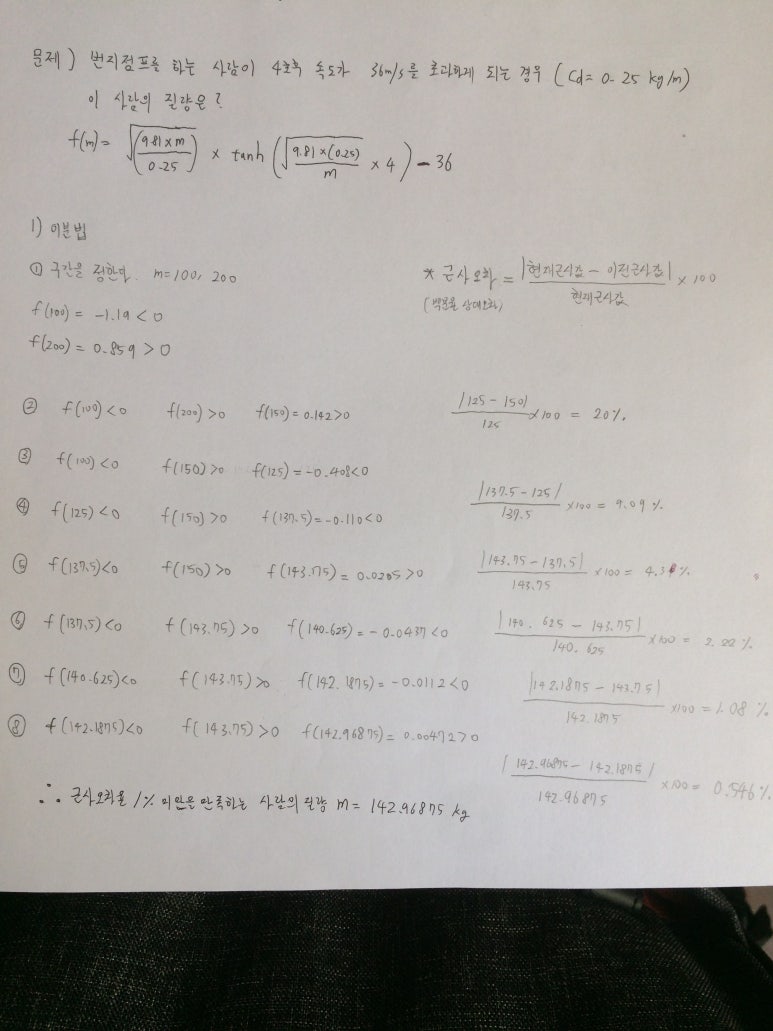 문제) 번지점프를 하는 사람이 4초후 속도가 36m/s를 초과하게 되는 경우 (Cd= 0.25 kg/m)
이 사람의 질량은?
f(m)= √((9.81×m)/0.25) × tanh (√(9.81×(0.25)/m) × 4) - 36
1) 이분법
① 구간을 정한다. m=100, 200
* 근사오차 = |현재근사값 - 이전근사값|/현재근사값 × 100
(백분율 상대오차)
f(100) = -1.19 < 0
f(200) = 0.859 > 0
② f(100)<0 f(200)>0 f(150)=0.142>0 |125-150|/125 ×100 = 20%.
③ f(100)<0 f(150)>0 f(125)=-0.408<0
④ f(125)<0 f(150)>0 f(137.5)=-0.110<0 |137.5-125|/137.5 ×100 = 9.09%
⑤ f(137.5)<0 f(150)>0 f(143.75)=0.0205>0 |143.75-137.5|/143.75 ×100 = 4.3%
⑥ f(137.5)<0 f(143.75)>0 f(140.625)=-0.0437<0 |140.625-143.75|/140.625 ×100 = 2.22%
⑦ f(140.625)<0 f(143.75)>0 f(142.1875)=-0.0112<0 |142.1875-143.75|/142.1875 ×100 = 1.08%
⑧ f(142.1875)<0 f(143.75)>0 f(142.96875)=0.00472>0
|142.96875-142.1875|/142.96875 ×100 = 0.546%
∴ 근사오차율 1% 미만을 만족하는 사람의 질량 m= 142.96875 kg